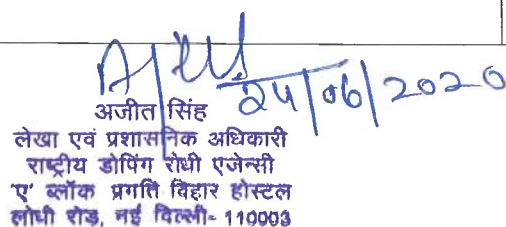 24/06/2020
अजीत सिंह
लेखा एवं प्रशासनिक अधिकारी
राष्ट्रीय डोपिंग रोधी एजेन्सी
'ए' ब्लॉक प्रगति विहार होस्टल
लोधी रोड़, नई दिल्ली- 110003